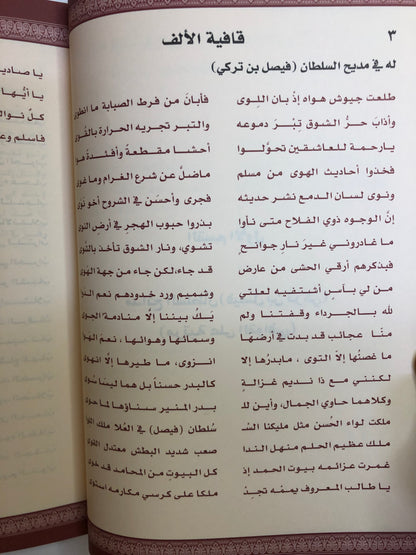 ٣
قافية الألف
له في مديح السلطان (فيصل بن تركي)
طلعت جيوش هواه إذ بان اللوى فأبان من فرط الصبابة ما انطوى
وأذاب حرُّ الشوق تِبْرَ دموعه والتبر تجريه الحرارة بالقوى
يارحمة للعاشقين تحوّلوا أحشا مقطعةً وأفئدة
فخذوا أحاديث الهوى من مسلم ماضلَّ عن شرع الغرام وما غوى
ونوى لسان الدمع نشر حديثه فجرى وأحسن في الشروح أخو نوى
إنَّ الوجوه ذوي الفلاح متى نأوا بذروا حبوب الهجر في أرض النوى
ما غادروني غيرَ نارِ جوانحٍ تشوي، ونار الشوق تأخذ بالشوى
فبذكرهم أرقي الحشى من عارض قد جاء، لكن جاء من جهة الهوى
من لي بآسٍ أشتفيه لعلتي وشميم ورد خدودهم نعم الدوا
لله بالجرداء وقفتنا ولم يكُ بيننا إلّا منادمة الجوى
منّا عجائب قد بدت في أرضها وسمائها وهوائها، نعمَ الهوا
ما غصنُها إلّا التوى، مابدرُها إلّا انزوى، ما طيرها إلّا انهوى
لكنني مع ذا نديم غزالةٍ كالبدر حسناً بل هما ليسا سوى
وكلاهما حاوي الجمال، وأين للـ بدر المنير سناؤها لما حوى
ملكت لواء الحُسن مثل مليكنا السُّـ سُلطان (فيصل) في العُلا ملك اللوا
ملك عظيم الحلم منهل الندا صعب شديد البطش معتدل القوى
غمرت عزائمه بيوت الحمد إذ كل البيوت من المحامد قد خوى
يا طالب المعروف يممْه تجدْ ملكا على كرسي مكارمه استوى